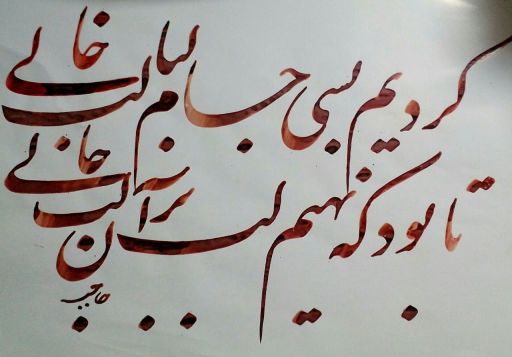 کردیم بسی جام لبالب خالی
تا بود که نهیم لب بر آن لب خالی